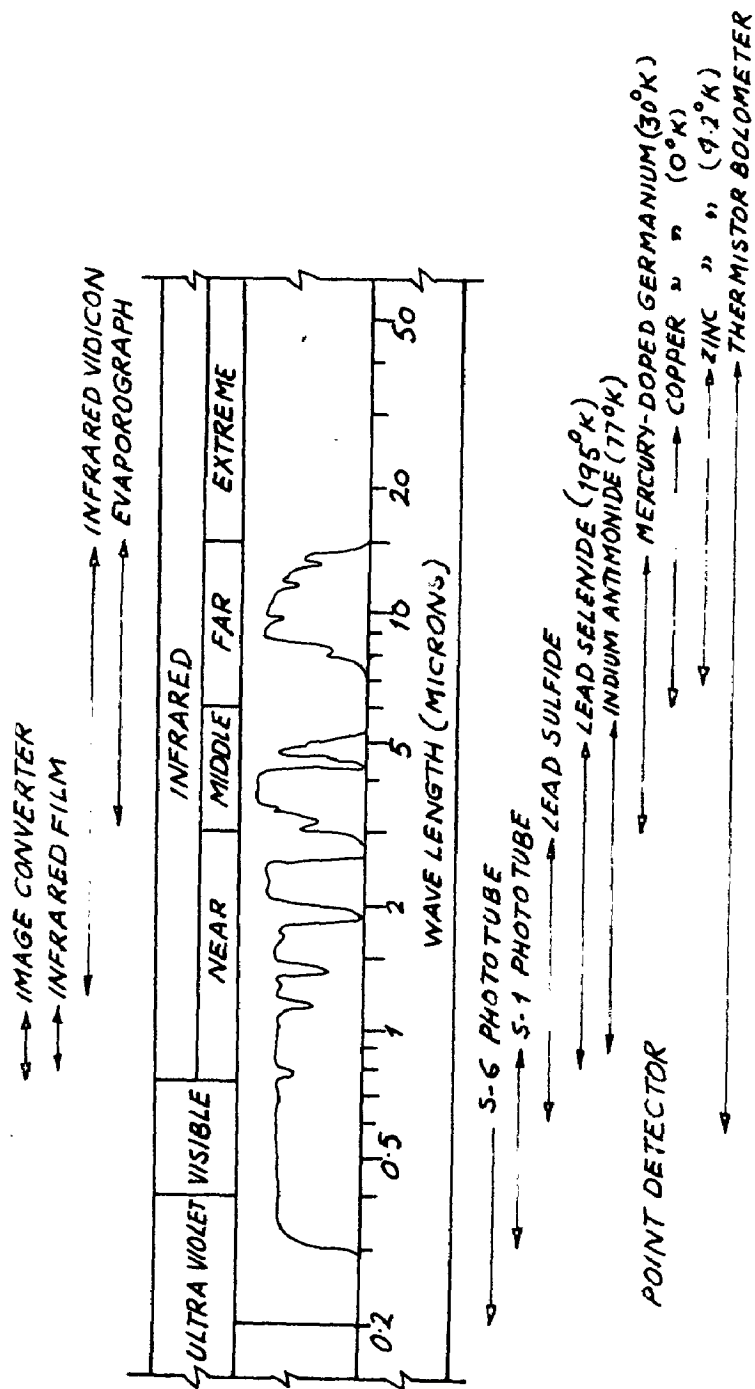 IMAGE CONVERTER
INFRARED FILM
INFRARED VIDICON
EVAPOROGRAPH
ULTRA VIOLET VISIBLE INFRARED
NEAR MIDDLE FAR EXTREME
0.2 0.5 1 2 5 10 20 50
WAVE LENGTH (MICRONS)
S-6 PHOTOTUBE
S-1 PHOTOTUBE
LEAD SULFIDE
LEAD SELENIDE (195°K)
INDIUM ANTIMONIDE (77°K)
MERCURY-DOPED GERMANIUM (30°K)
COPPER " " (0°K)
ZINC " " (4.2°K)
THERMISTOR BOLOMETER
POINT DETECTOR